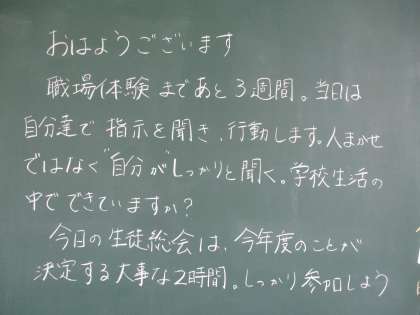 おはようございます
職場体験まであと3週間。当日は
自分達で指示を聞き、行動します。人まかせ
ではなく"自分が"しっかりと聞く。学校生活の
中でできていますか？
今日の生徒総会は、今年度のことが
決定する大事な2時間。しっかり参加しよう